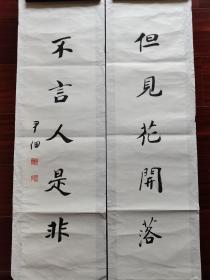 但見花開落
不言人是非
尹佃